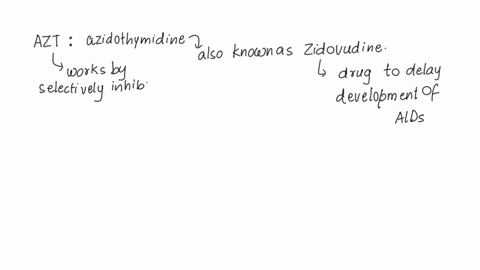 AZT : azidothymidine
also known as Zidovudine.
works by
selectively inhib
drug to delay
development of
AIDs